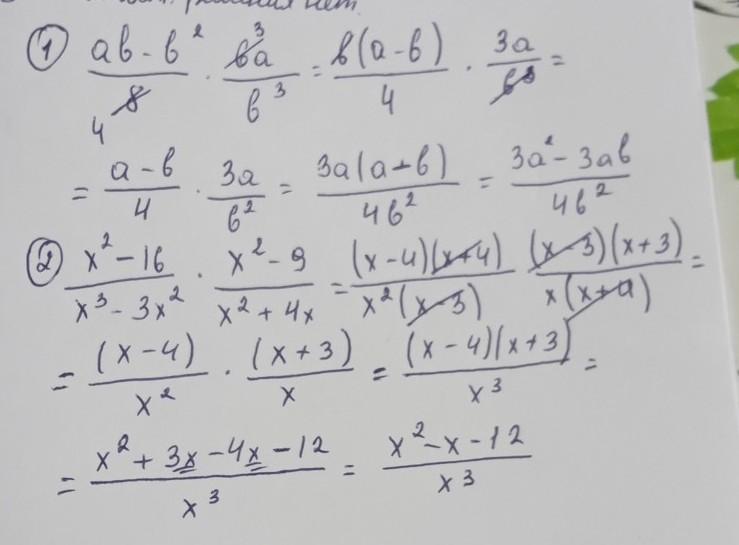 решения нет.
① (ab - b²)/8̸ 4 · 6̸³a/b³ = b̸(a - b)/4 · 3a/b̸³̸ =
= (a - b)/4 · 3a/b² = 3a(a - b)/4b² = (3a² - 3ab)/4b²
② (x² - 16)/(x³ - 3x²) · (x² - 9)/(x² + 4x) = (x - 4)(x + 4)/x²(x - 3) (x - 3)(x + 3)/x(x + 4) =
= (x - 4)/x² · (x + 3)/x = (x - 4)(x + 3)/x³ =
= (x² + 3x - 4x - 12)/x³ = (x² - x - 12)/x³